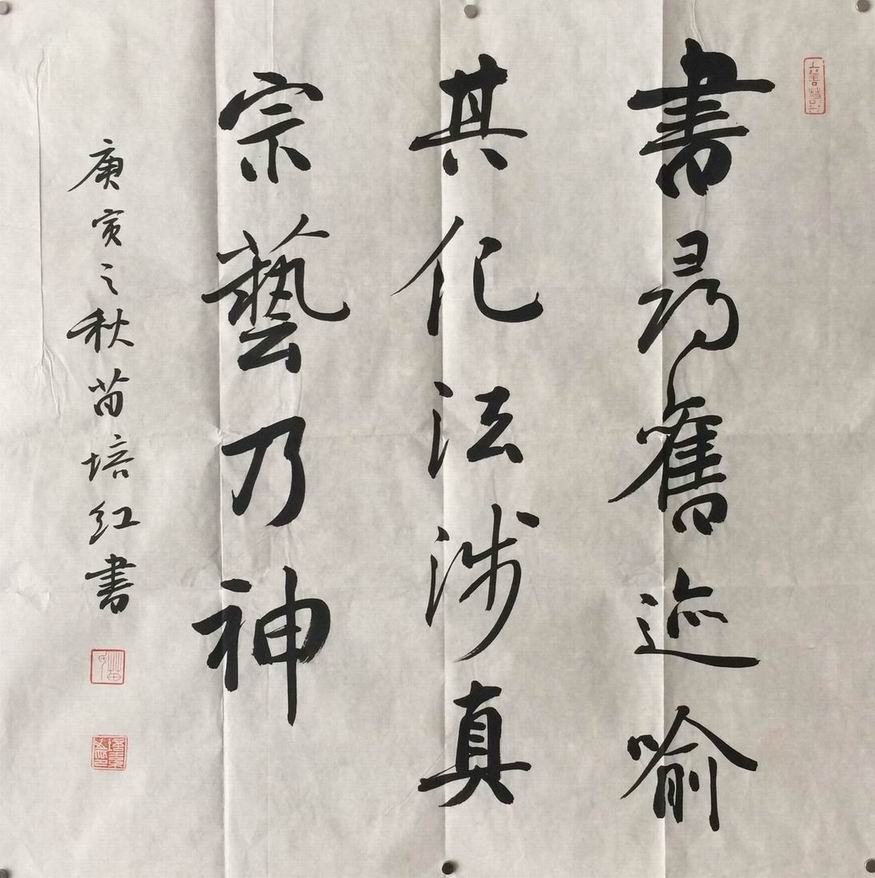 書尋舊迹喻
其化法涉真
宗藝乃神
庚寅之秋苗培红書